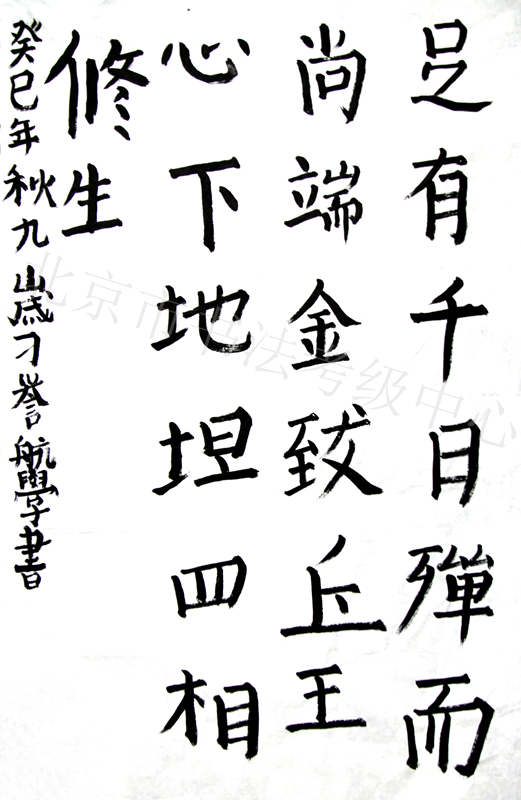 足有千日殫而
尚端金致丘王
心下地坦四相
修生
癸巳年秋九歲刁誉航學書
北京市书法考级中心